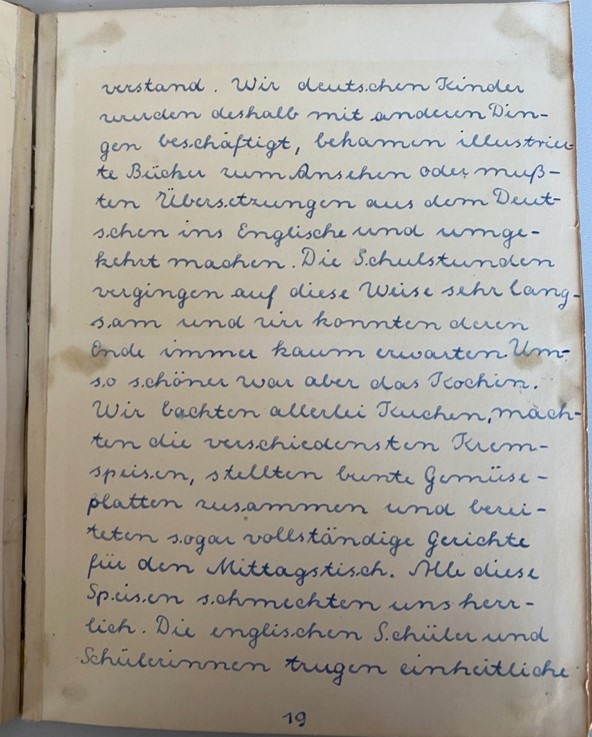 verstand. Wir deutschen Kinder
wurden deshalb mit anderen Din-
gen beschäftigt, bekamen illustrier-
te Bücher zum Ansehen oder muß-
ten Übersetzungen aus dem Deut-
schen ins Englische und umge-
kehrt machen. Die Schulstunden
vergingen auf diese Weise sehr lang-
sam und wir konnten deren
Ende immer kaum erwarten. Um-
so schöner war aber das Kochen.
Wir backten allerlei Kuchen, mach-
ten die verschiedensten Krem-
speisen, stellten bunte Gemüse-
platten zusammen und berei-
teten sogar vollständige Gerichte
für den Mittagstisch. Alle diese
Speisen schmeckten uns herr-
lich. Die englischen Schüler und
Schülerinnen trugen einheitliche
19